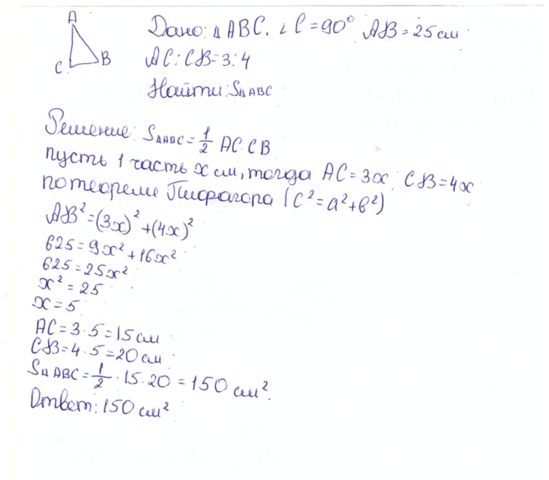 A
C
B
Дано: ΔABC, ∠C=90° AB=25 см
AC:CB=3:4
Найти: SΔABC
Решение: SΔABC=1/2 AC·CB
пусть 1 часть x см, тогда AC=3x CB=4x
по теореме Пифагора (c²=a²+b²)
AB²=(3x)²+(4x)²
625=9x²+16x²
625=25x²
x²=25
x=5
AC=3·5=15 см
CB=4·5=20 см
SΔABC=1/2·15·20=150 см².
Ответ: 150 см²